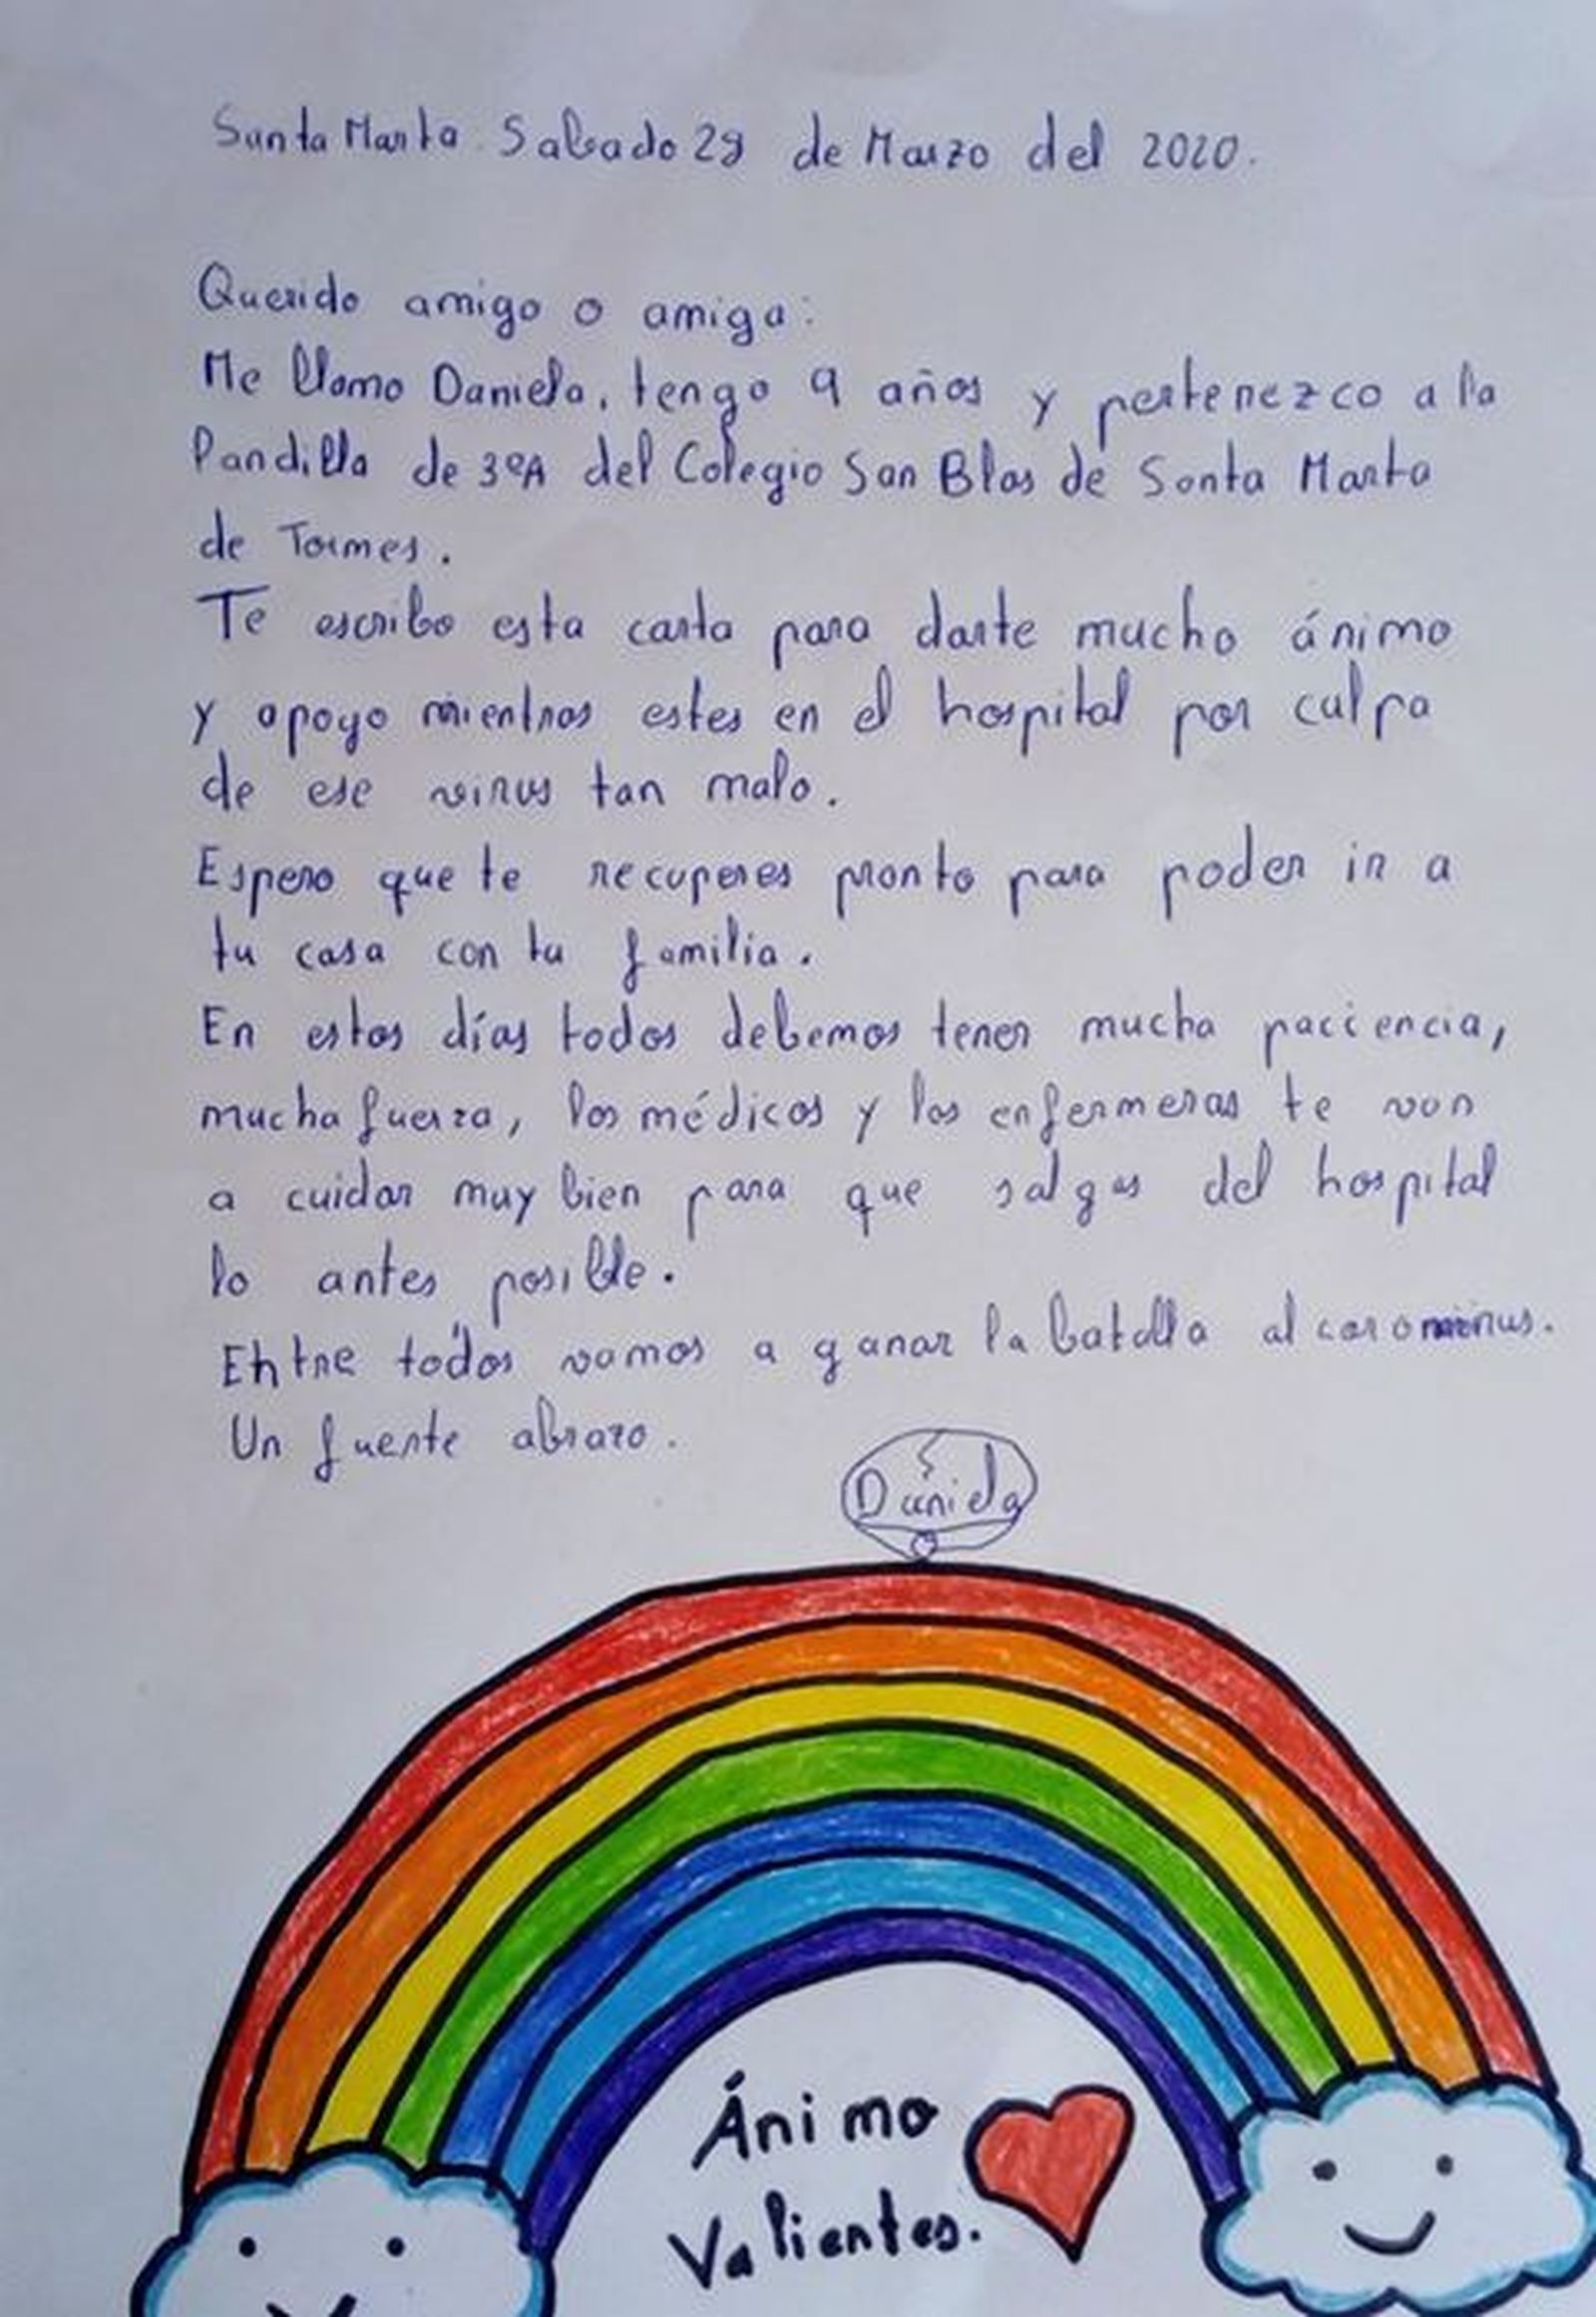 Santa Marta Sabado 28 de Marzo del 2020.
Querido amigo o amiga:
Me llamo Daniela, tengo 9 años y pertenezco a la
Pandilla de 3ºA del Colegio San Blas de Santa Marta
de Tormes.
Te escribo esta carta para darte mucho ánimo
y apoyo mientras estes en el hospital por culpa
de ese virus tan malo.
Espero que te recuperes pronto para poder ir a
tu casa con tu familia.
En estos días todos debemos tener mucha paciencia,
mucha fuerza, los médicos y las enfermeras te van
a cuidar muy bien para que salgas del hospital
lo antes posible.
Entre todos vamos a ganar la batalla al coronavirus.
Un fuerte abrazo.
Daniela
Ánimo
Valientes.